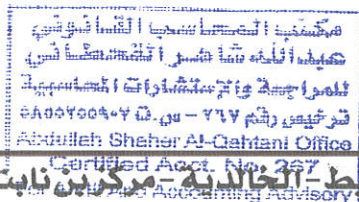 مكتب المحاسب القانوني
عبدالله شاهر القحطاني
للمراجعة والإستشارات المحاسبية
ترخيص رقم ٢٦٧ - س.ت
Abdullah Shaher Al-Qahtani Office
Certified Acct. No. 267
Accounting Advisory
الخالدية - مركز بن ثابت